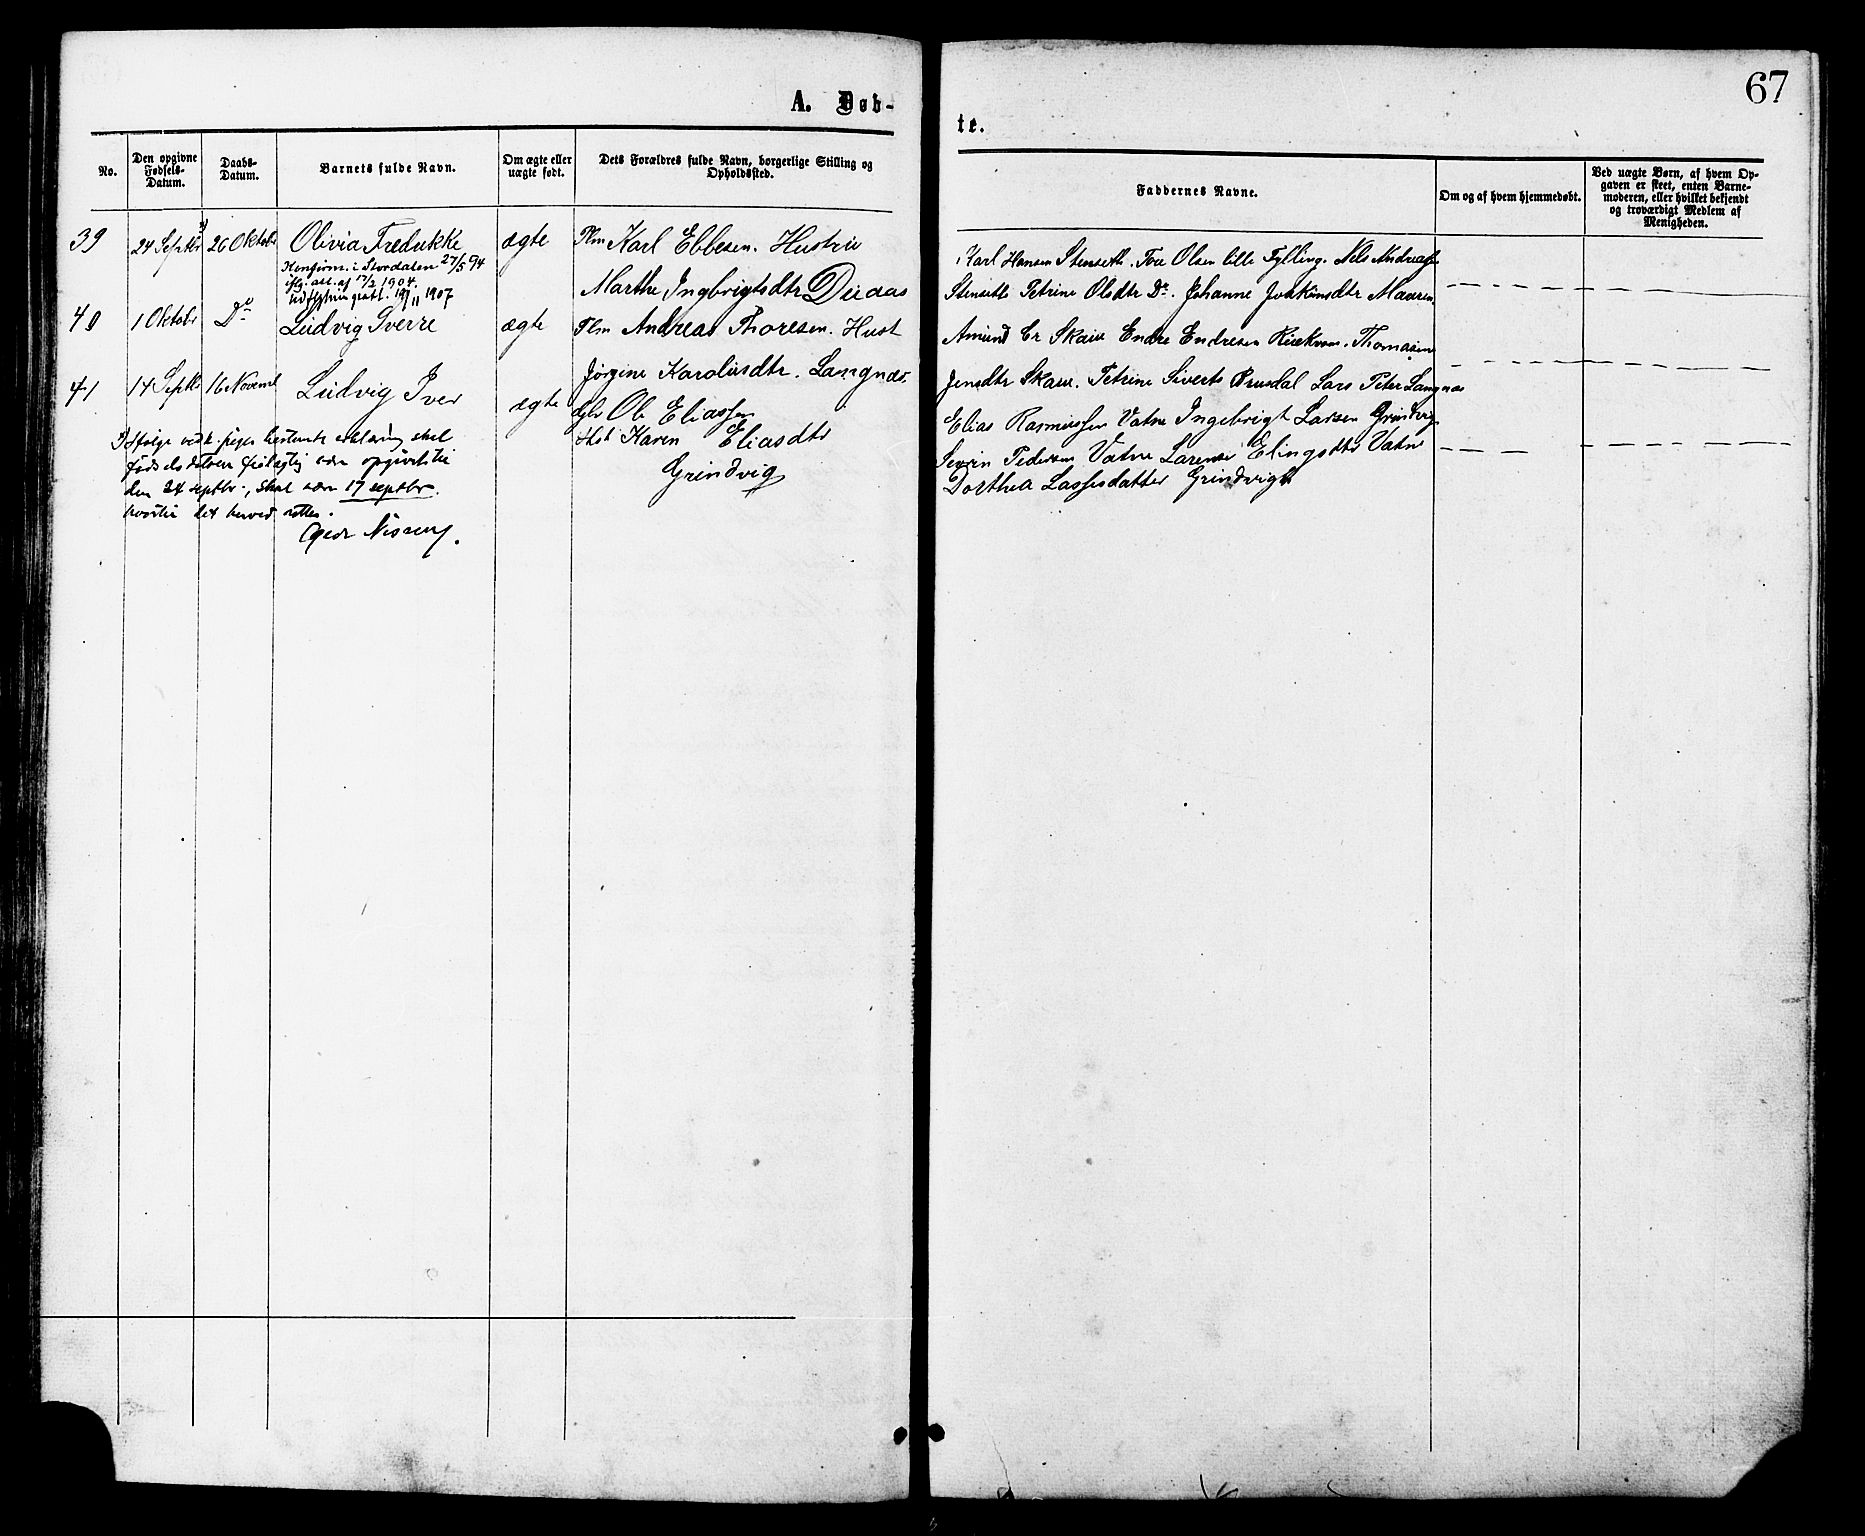 67
A. Døb-
te.
No.
Den opgivne Fødsels-Datum.
Daabs-Datum.
Barnets fulde Navn.
Om ægte eller uægte født.
Dets Forældres fulde Navn, borgerlige Stilling og Opholdssted.
Faddernes Navne.
Om og af hvem hjemmedøbt.
Ved uægte Børn, af hvem Op-
gaven er skeet, enten Barne-
moderen, eller hvilket bekjendt
og troværdigt Medlem af
Menigheden.
39 24 Septbr 26 Oktobr Olivia Fredrikke ægte Plm Karl Ebbesen. Hustru
Konfirm. i Stordalen 27/5 94
ifg. att. af 17/2 1904.
19/11 1907
Marthe Ingbrigtsdtr Duaas
Karl Hansen Stenseth. Tore Olsen lille Fylling. Nils Andreas
Stenseth Petrine Olsdtr Do. Johanne Joakimsdtr Maaren
40 1 Oktobr Do Ludvig Sverre ægte Plm Andreas Thoresen. Hust
Jørgine Karolusdtr. Langnæs.
Amund Er Skaue Endre Endresen Thomasine
Jensdtr Skaue. Petrine Siverts Brusdal Lars Peter Langnæs
41 14 Septbr 16 Novembr Ludvig Iver ægte Ole Eliassen
Hst Karen Eliasdtr
Grindvig
Elias Rasmussen Vatne Ingebrigt Larsen Grindvig
Severin Pedersen Vatne Larense Elingsdtr Vatne
Dorthea Lassesdatter Grindvig
erklæring skal
fødselsdatoen
den 24 septbr., skal være 17 septbr.
det herved rettes.
Nissen.